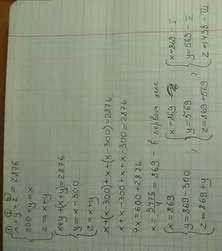 ① ② ③
x+y+z=2876
300+y=x
z=x+y
x+y+(x+y)=2876
y=x-300
z=x+y
x+(x-300)+x+(x-300)=2876
x+x-300+x+x-300=2876
4x=600+2876
x=3476/4=869 - в первом
x=869
y=869-300
z=869+y
x=869
y=569
z=869+569
x=869-I
y=569-II
z=1438-III